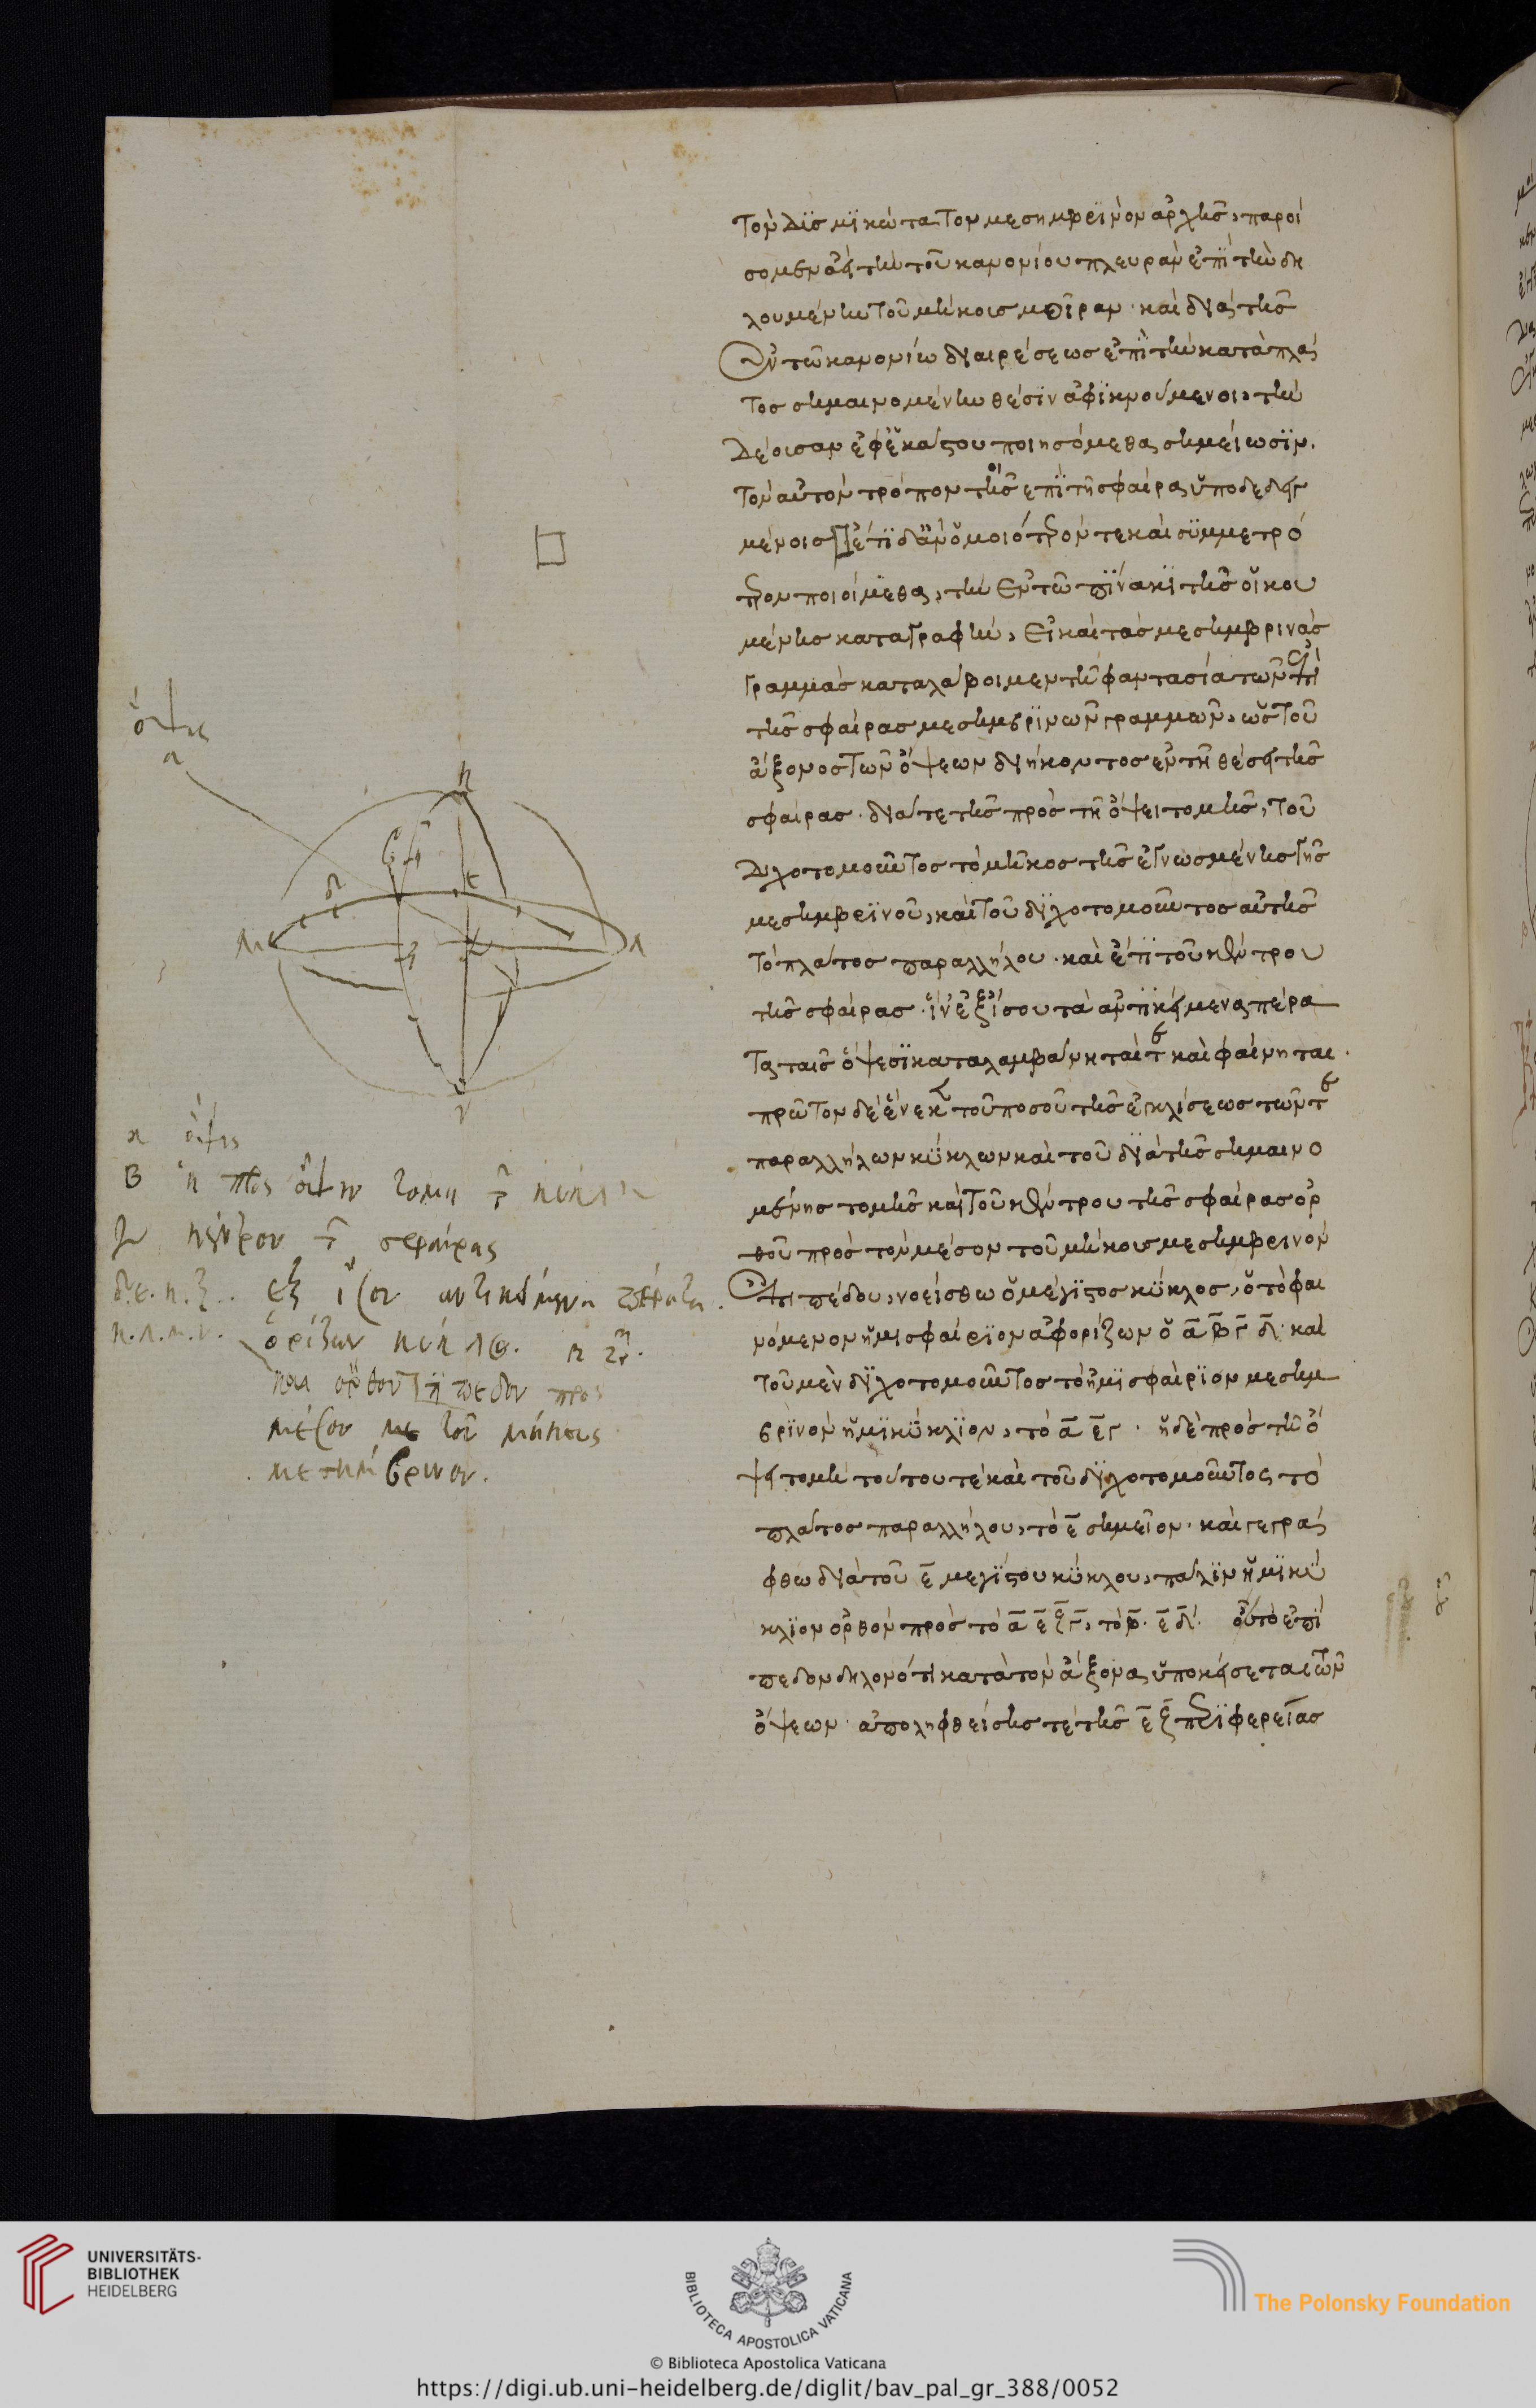 τὸν δισμικώτατον μεσημβρινὸν ἀρχῆς, παροί
σομεν ἀεὶ τὴν τοῦ κανονίου πλευρὰν ἐπὶ τὴν δη
λουμένην τοῦ μήκους μοῖραν· καὶ διὰ τῆς
ἐν τῶ κανονίω διαιρέσεως ἐπὶ τὴν κατὰ πλά
τος σημαινομένην θέσιν ἀφικνούμενοι, τὴν
δέουσαν ἐφ' ἑκάστου ποιησόμεθα σημείωσιν.
τὸν αὐτὸν τρόπον τοῖς ἐπὶ τῆς σφαίρας ὑποδεδειγ
μένοις ἔτι δ' ἂν ὁμοιότερόν τε καὶ συμμετρό
τερον ποιοίμεθα, τὴν ἐν τῶ πίνακι τῆς οἰκου
μένης καταγραφήν, εἰ καὶ τὰς μεσημβρινὰς
γραμμὰς καταλάβοιμεν τῆ φαντασία τῶν ἐπὶ
τῆς σφαίρας μεσημβρινῶν γραμμῶν, ὡς τοῦ
ἄξονος τῶν ὄψεων διήκοντος ἐν τῆ θέσει τῆς
σφαίρας· διά τε τῆς πρὸς τῆ ὄψει τομῆς, τοῦ
διχοτομοῦντος τὸ μῆκος τῆς ἐγνωσμένης γῆς
μεσημβρινοῦ, καὶ τοῦ διχοτομοῦντος αὐτῆς
τὸ πλάτος παραλλήλου· καὶ ἔτι τοῦ κέντρου
τῆς σφαίρας· ἵν' ἐξ ἴσου τὰ ἀντικείμενα πέρα
τα ταῖς ὄψεσι καταλαμβάνηται καὶ φαίνηται·
πρῶτον δὲ ἕνεκα τοῦ ποσοῦ τῆς ἐγκλίσεως τῶν
παραλλήλων κύκλων καὶ τοῦ διὰ τῆς σημαινο
μένης τομῆς καὶ τοῦ κέντρου τῆς σφαίρας ὀρ
θοῦ πρὸς τὸν μέσον τοῦ μήκους μεσημβρινὸν
ἐπιπέδου, νοείσθω ὁ μέγιστος κύκλος, ὁ τὸ φαι
νόμενον ἡμισφαίριον ἀφορίζων ὁ α β γ δ· καὶ
τοῦ μὲν διχοτομοῦντος τὸ ἡμισφαίριον μεσημ
βρινὸν ἡμικύκλιον, τὸ α ε γ· ἡ δὲ πρὸς τῆ ὄ
ψει τομὴ τούτου τε καὶ τοῦ διχοτομοῦντος τὸ
πλάτος παραλλήλου, τὸ ε σημεῖον· καὶ γεγρά
φθω διὰ τοῦ ε μεγίστου κύκλου, πάλιν ἡμικύ
κλιον ὀρθὸν πρὸς τὸ α ε ξ γ, τὸ β. ε δ. οὗ τὸ ἐπί
πεδον δηλονότι κατὰ τὸν ἄξονα ὑποκείσεται τῶν
ὄψεων· ἀποληφθείσης τε τῆς ε ξ περιφερείας
ὄψις
α
α ὄψις
β ἡ πρὸς ὄψιν τομὴ
κέντρον τ σφαίρας
ἐξ ἴσου ἀντικείμενα πέρατα
ὁρίζων
καὶ ὀρθοῦ ἐπίπεδον πρὸς
μέσον τοῦ μήκους
μεσημβρινον.
UNIVERSITÄTS-
BIBLIOTHEK
HEIDELBERG
BIBLIOTECA APOSTOLICA VATICANA
The Polonsky Foundation
© Biblioteca Apostolica Vaticana
https://digi.ub.uni-heidelberg.de/diglit/bav_pal_gr_388/0052